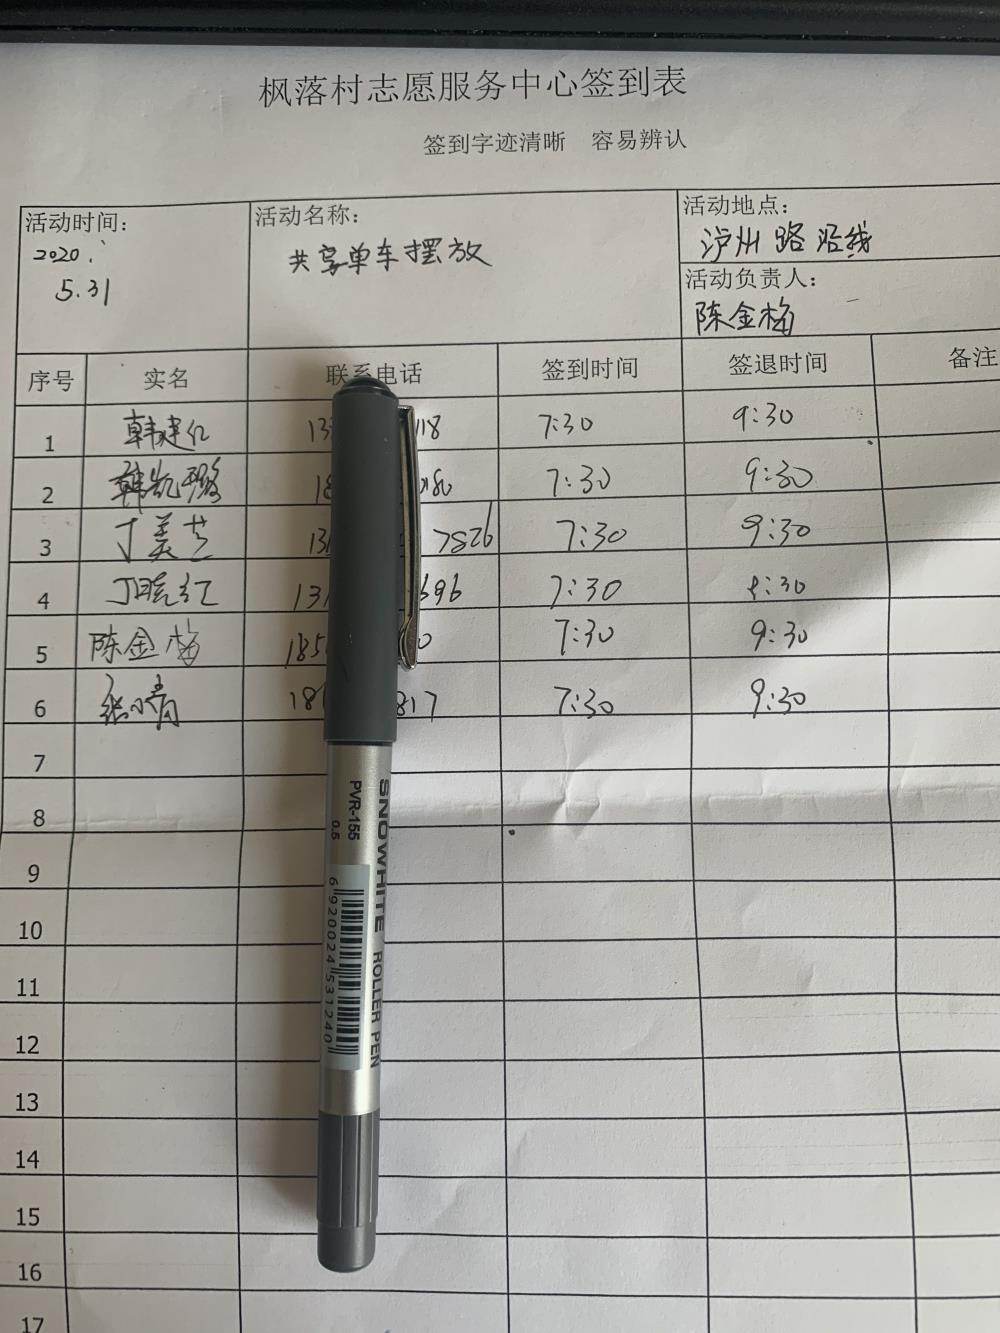 枫落村志愿服务中心签到表
签到字迹清晰 容易辨认
活动时间： 活动名称： 活动地点：
2020. 共享单车摆放 泸州路沿线
5.31 活动负责人：
陈金梅
序号 实名 联系电话 签到时间 签退时间 备注
1 韩建仁 13 118 7:30 9:30
2 韩凯璐 18 0180 7:30 9:30
3 丁美芝 13 7826 7:30 9:30
4 丁晓红 131 696 7:30 9:30
5 陈金梅 185 0 7:30 9:30
6 张小青 181 817 7:30 9:30
7
8
9
10
11
12
13
14
15
16
17
SNOWHITE ROLLER PEN
PVR-155
0.5
6 920024 531240